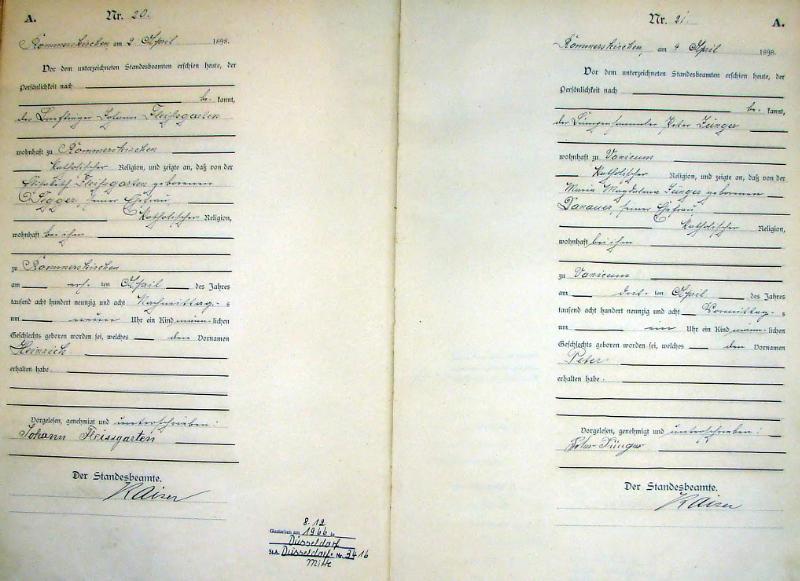 A.
Nr. 20.
Rommerskirchen am 2 April 1898.
Vor dem unterzeichneten Standesbeamten erschien heute, der
Persönlichkeit nach
be kannt,
der Johann Fleissgarten
wohnhaft zu Rommerskirchen
katholischer Religion, und zeigte an, daß von der
Fleissgarten geborenen
seiner Ehefrau,
katholischer Religion,
wohnhaft bei ihm
zu Rommerskirchen
am ersten April des Jahres
tausend acht hundert neunzig und acht Nachmittags
um neun Uhr ein Kind männlichen
Geschlechts geboren worden sei, welches den Vornamen
Heinrich
erhalten habe.
Vorgelesen, genehmigt und unterschrieben:
Johann Fleissgarten
Der Standesbeamte.
Kaiser
8.12
1966 in
Düsseldorf
StA Düsseldorf- Nr. 3416
Mitte
Nr. 21.
A.
Rommerskirchen, am 4 April 1898.
Vor dem unterzeichneten Standesbeamten erschien heute, der
Persönlichkeit nach
be kannt,
der Peter Jünger
wohnhaft zu Vanikum
katholischer Religion, und zeigte an, daß von der
Maria Magdalena Jünger geborenen
seiner Ehefrau
katholischer Religion,
wohnhaft bei ihm
zu Vanikum
am dritten April des Jahres
tausend acht hundert neunzig und acht Vormittags
um Uhr ein Kind männlichen
Geschlechts geboren worden sei, welches den Vornamen
Peter
erhalten habe.
Vorgelesen, genehmigt und unterschrieben:
Peter Jünger
Der Standesbeamte.
Kaiser